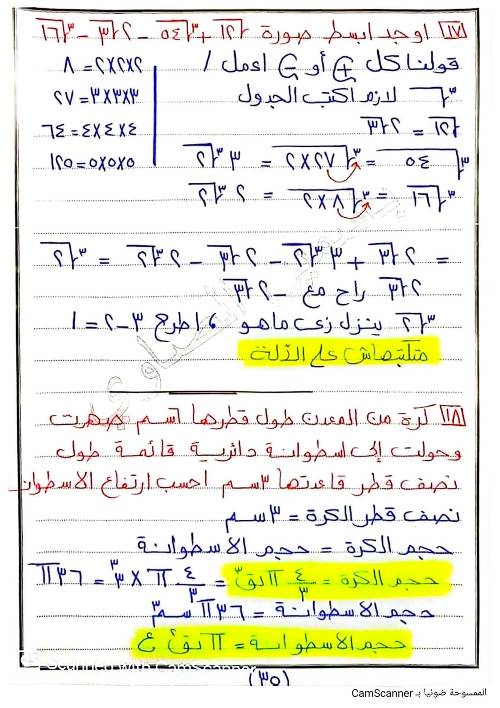 ١٧ اوجد ابسط صورة √١٢ + ³√٥٤ - ٢√٣ - ³√١٦
قولنا كل + أو - اعمل /
³√ لازم اكتب الجدول
٢×٢×٢ = ٨
٣×٣×٣ = ٢٧
٤×٤×٤ = ٦٤
٥×٥×٥ = ١٢٥
√١٢ = ٢√٣
³√٥٤ = ³√٢٧×٢ = ٣ ³√٢
³√١٦ = ³√٨×٢ = ٢ ³√٢
= ٢√٣ + ٣ ³√٢ - ٢√٣ - ٢ ³√٢ = ³√٢
٢√٣ راح مع - ٢√٣
³√٢ ينزل زى ماهو ، اطرح ٣-٢ = ١
متكتبهاش على الآلة
١٨ كرة من المعدن طول قطرها ٦سم صهرت
وحولت إلى اسطوانة دائرية قائمة طول
نصف قطر قاعدتها ٣سم احسب ارتفاع الاسطوان
نصف قطر الكرة = ٣سم
حجم الكرة = حجم الاسطوانة
حجم الكرة = ٤/٣ π نق³ = ٤/٣ π × ٣³ = ٣٦π
حجم الاسطوانة = ٣٦π سم³
حجم الاسطوانة = π نق² ع
Scanned with CamScanner
(٣٥)
الممسوحة ضوئيا بـ CamScanner